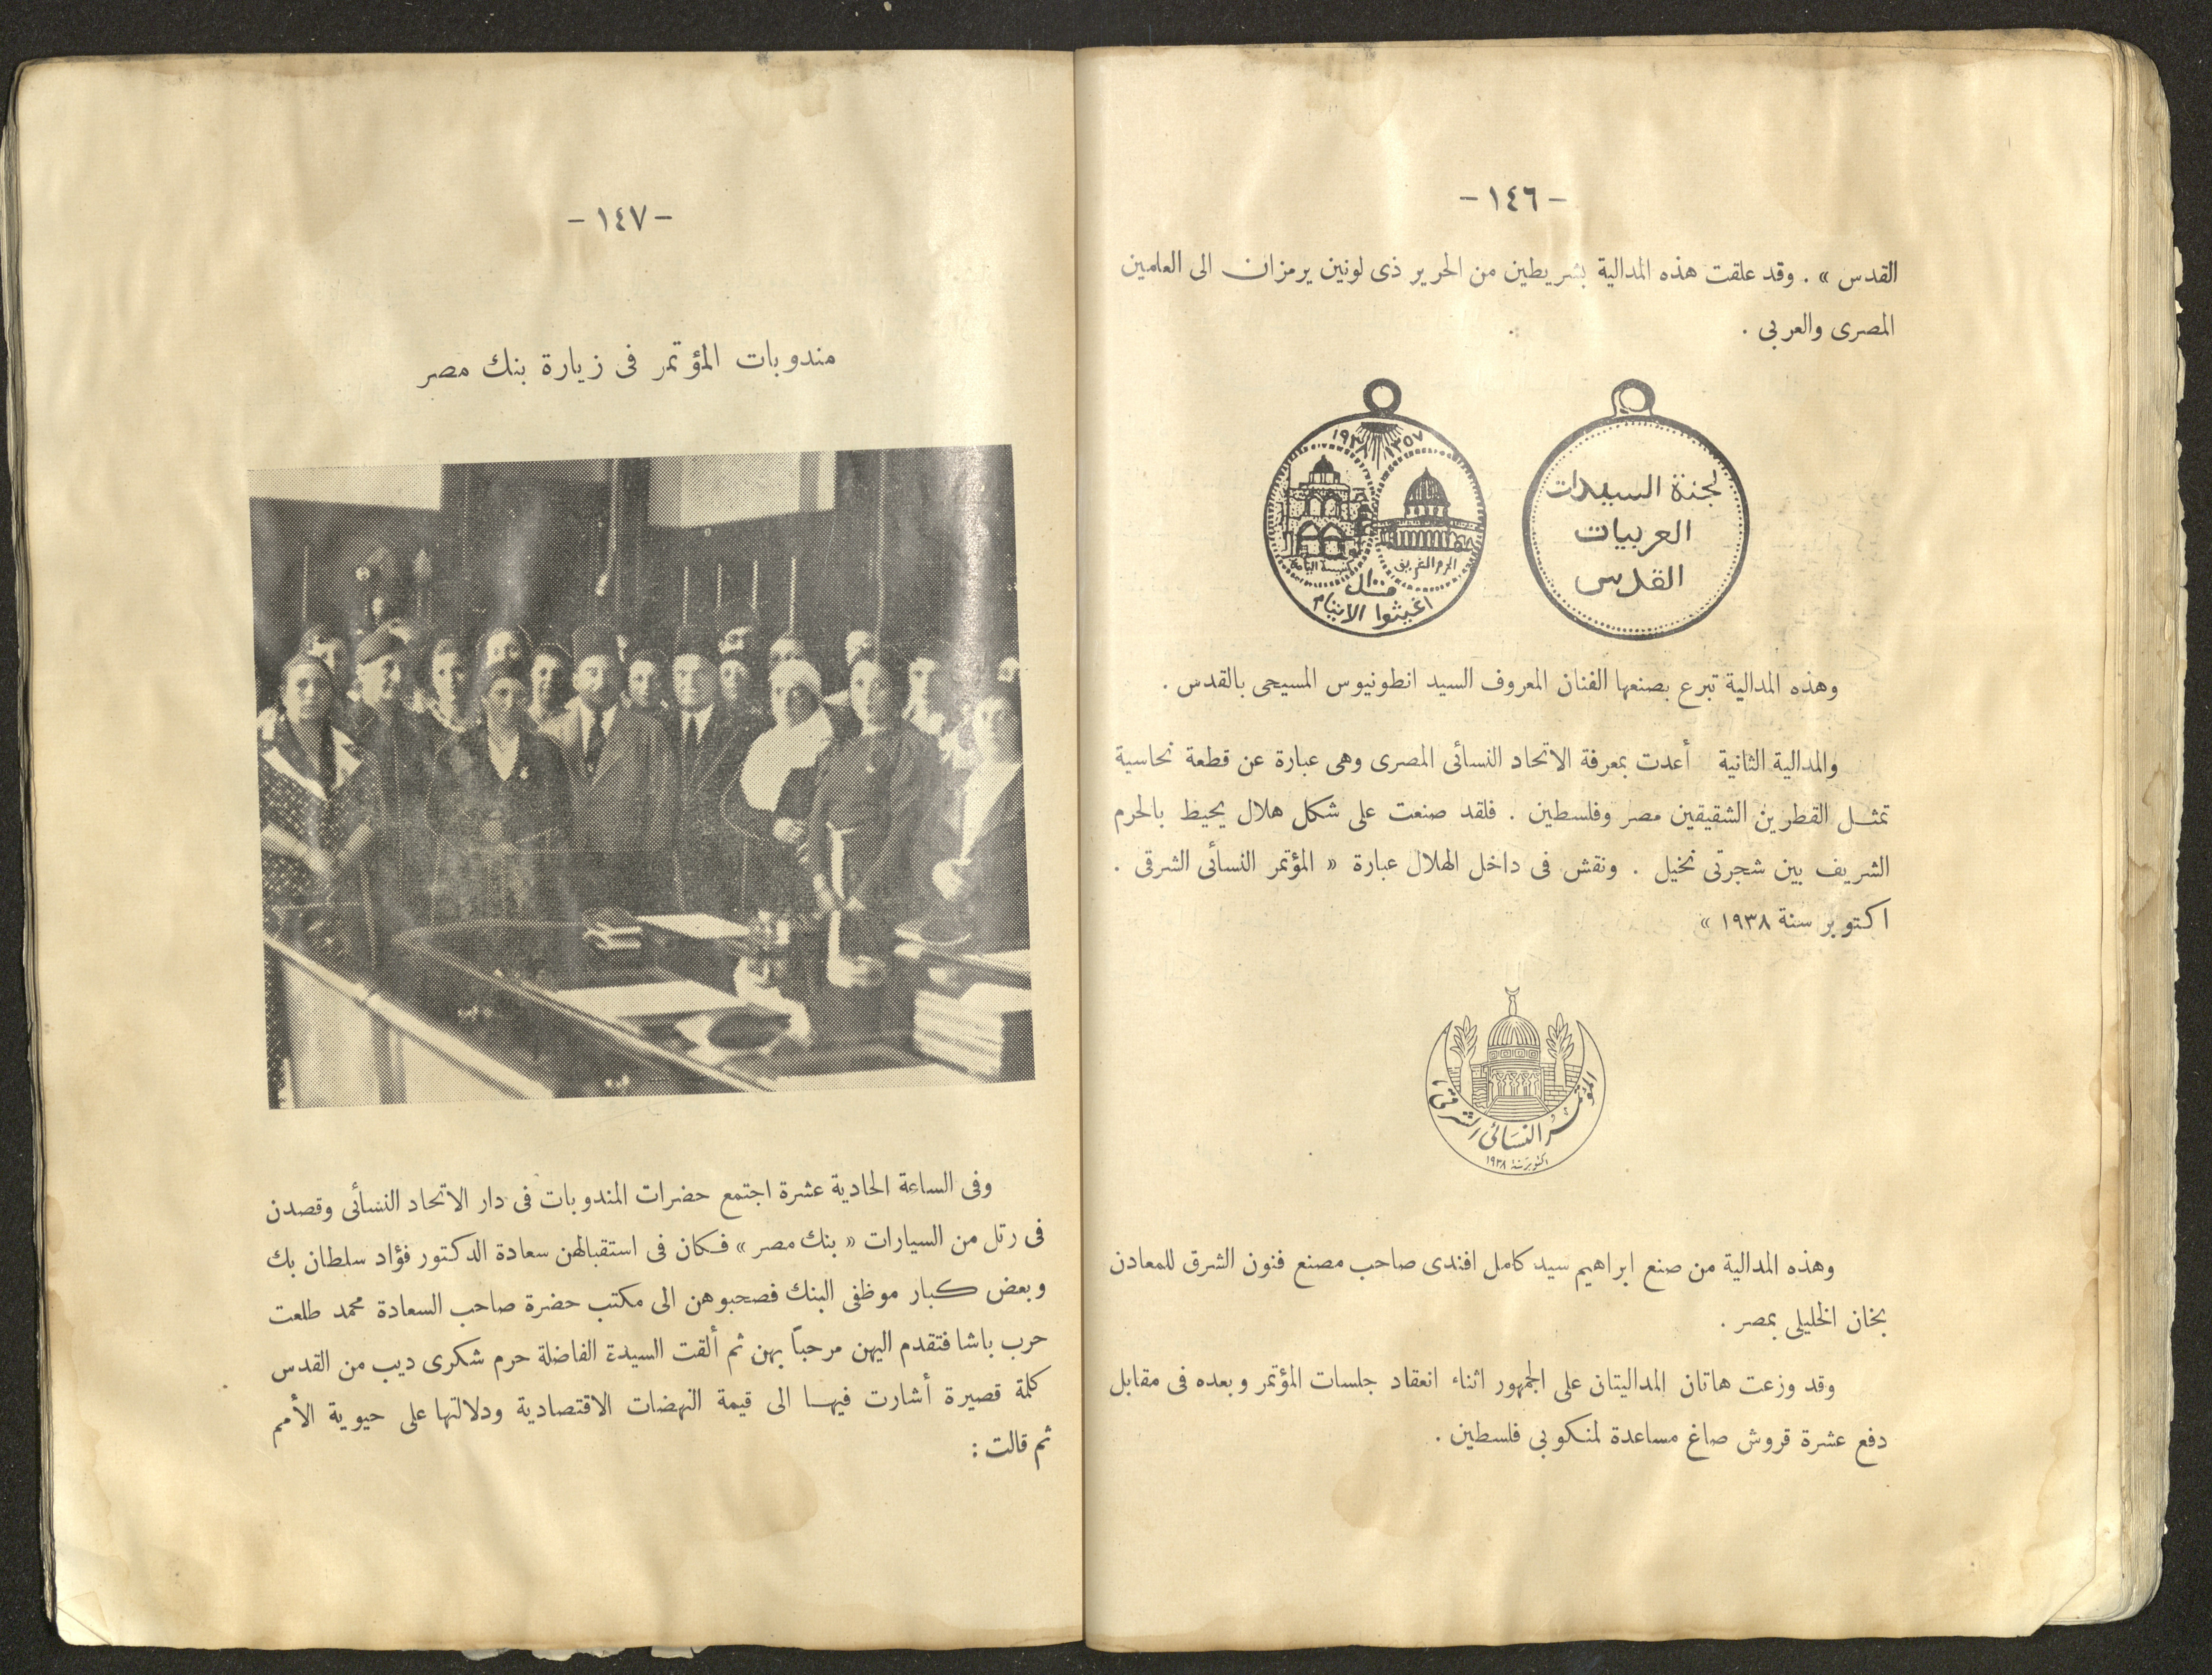 - ١٤٦ -
القدس » . وقد علقت هذه المدالية بشريطين من الحرير ذى لونين يرمزان الى العلمين
المصرى والعربى .
لجنة السيدات
العربيات
القدس
١٣٥٧
١٩٣٨
الحرم الشريف
كنيسة القيامة
اغيثوا الايتام
وهذه المدالية تبرع بصنعها الفنان المعروف السيد انطونيوس المسيحى بالقدس .
والمدالية الثانية أعدت بمعرفة الاتحاد النسائى المصرى وهى عبارة عن قطعة نحاسية
تمثل القطرين الشقيقين مصر وفلسطين . فلقد صنعت على شكل هلال يحيط بالحرم
الشريف بين شجرتى نخيل . ونقش فى داخل الهلال عبارة « المؤتمر النسائى الشرقى .
اكتوبر سنة ١٩٣٨ »
المؤتمر النسائى الشرقى
اكتوبر سنة ١٩٣٨
وهذه المدالية من صنع ابراهيم سيد كامل افندى صاحب مصنع فنون الشرق للمعادن
بخان الخليلى بمصر .
وقد وزعت هاتان المداليتان على الجمهور اثناء انعقاد جلسات المؤتمر وبعده فى مقابل
دفع عشرة قروش صاغ مساعدة لمنكوبى فلسطين .
- ١٤٧ -
مندوبات المؤتمر فى زيارة بنك مصر
وفى الساعة الحادية عشرة اجتمع حضرات المندوبات فى دار الاتحاد النسائى وقصدن
فى رتل من السيارات « بنك مصر » فكان فى استقبالهن سعادة الدكتور فؤاد سلطان بك
وبعض كبار موظفى البنك فصحبوهن الى مكتب حضرة صاحب السعادة محمد طلعت
حرب باشا فتقدم اليهن مرحباً بهن ثم ألقت السيدة الفاضلة حرم شكرى ديب من القدس
كلمة قصيرة أشارت فيها الى قيمة النهضات الاقتصادية ودلالتها على حيوية الأمم
ثم قالت :